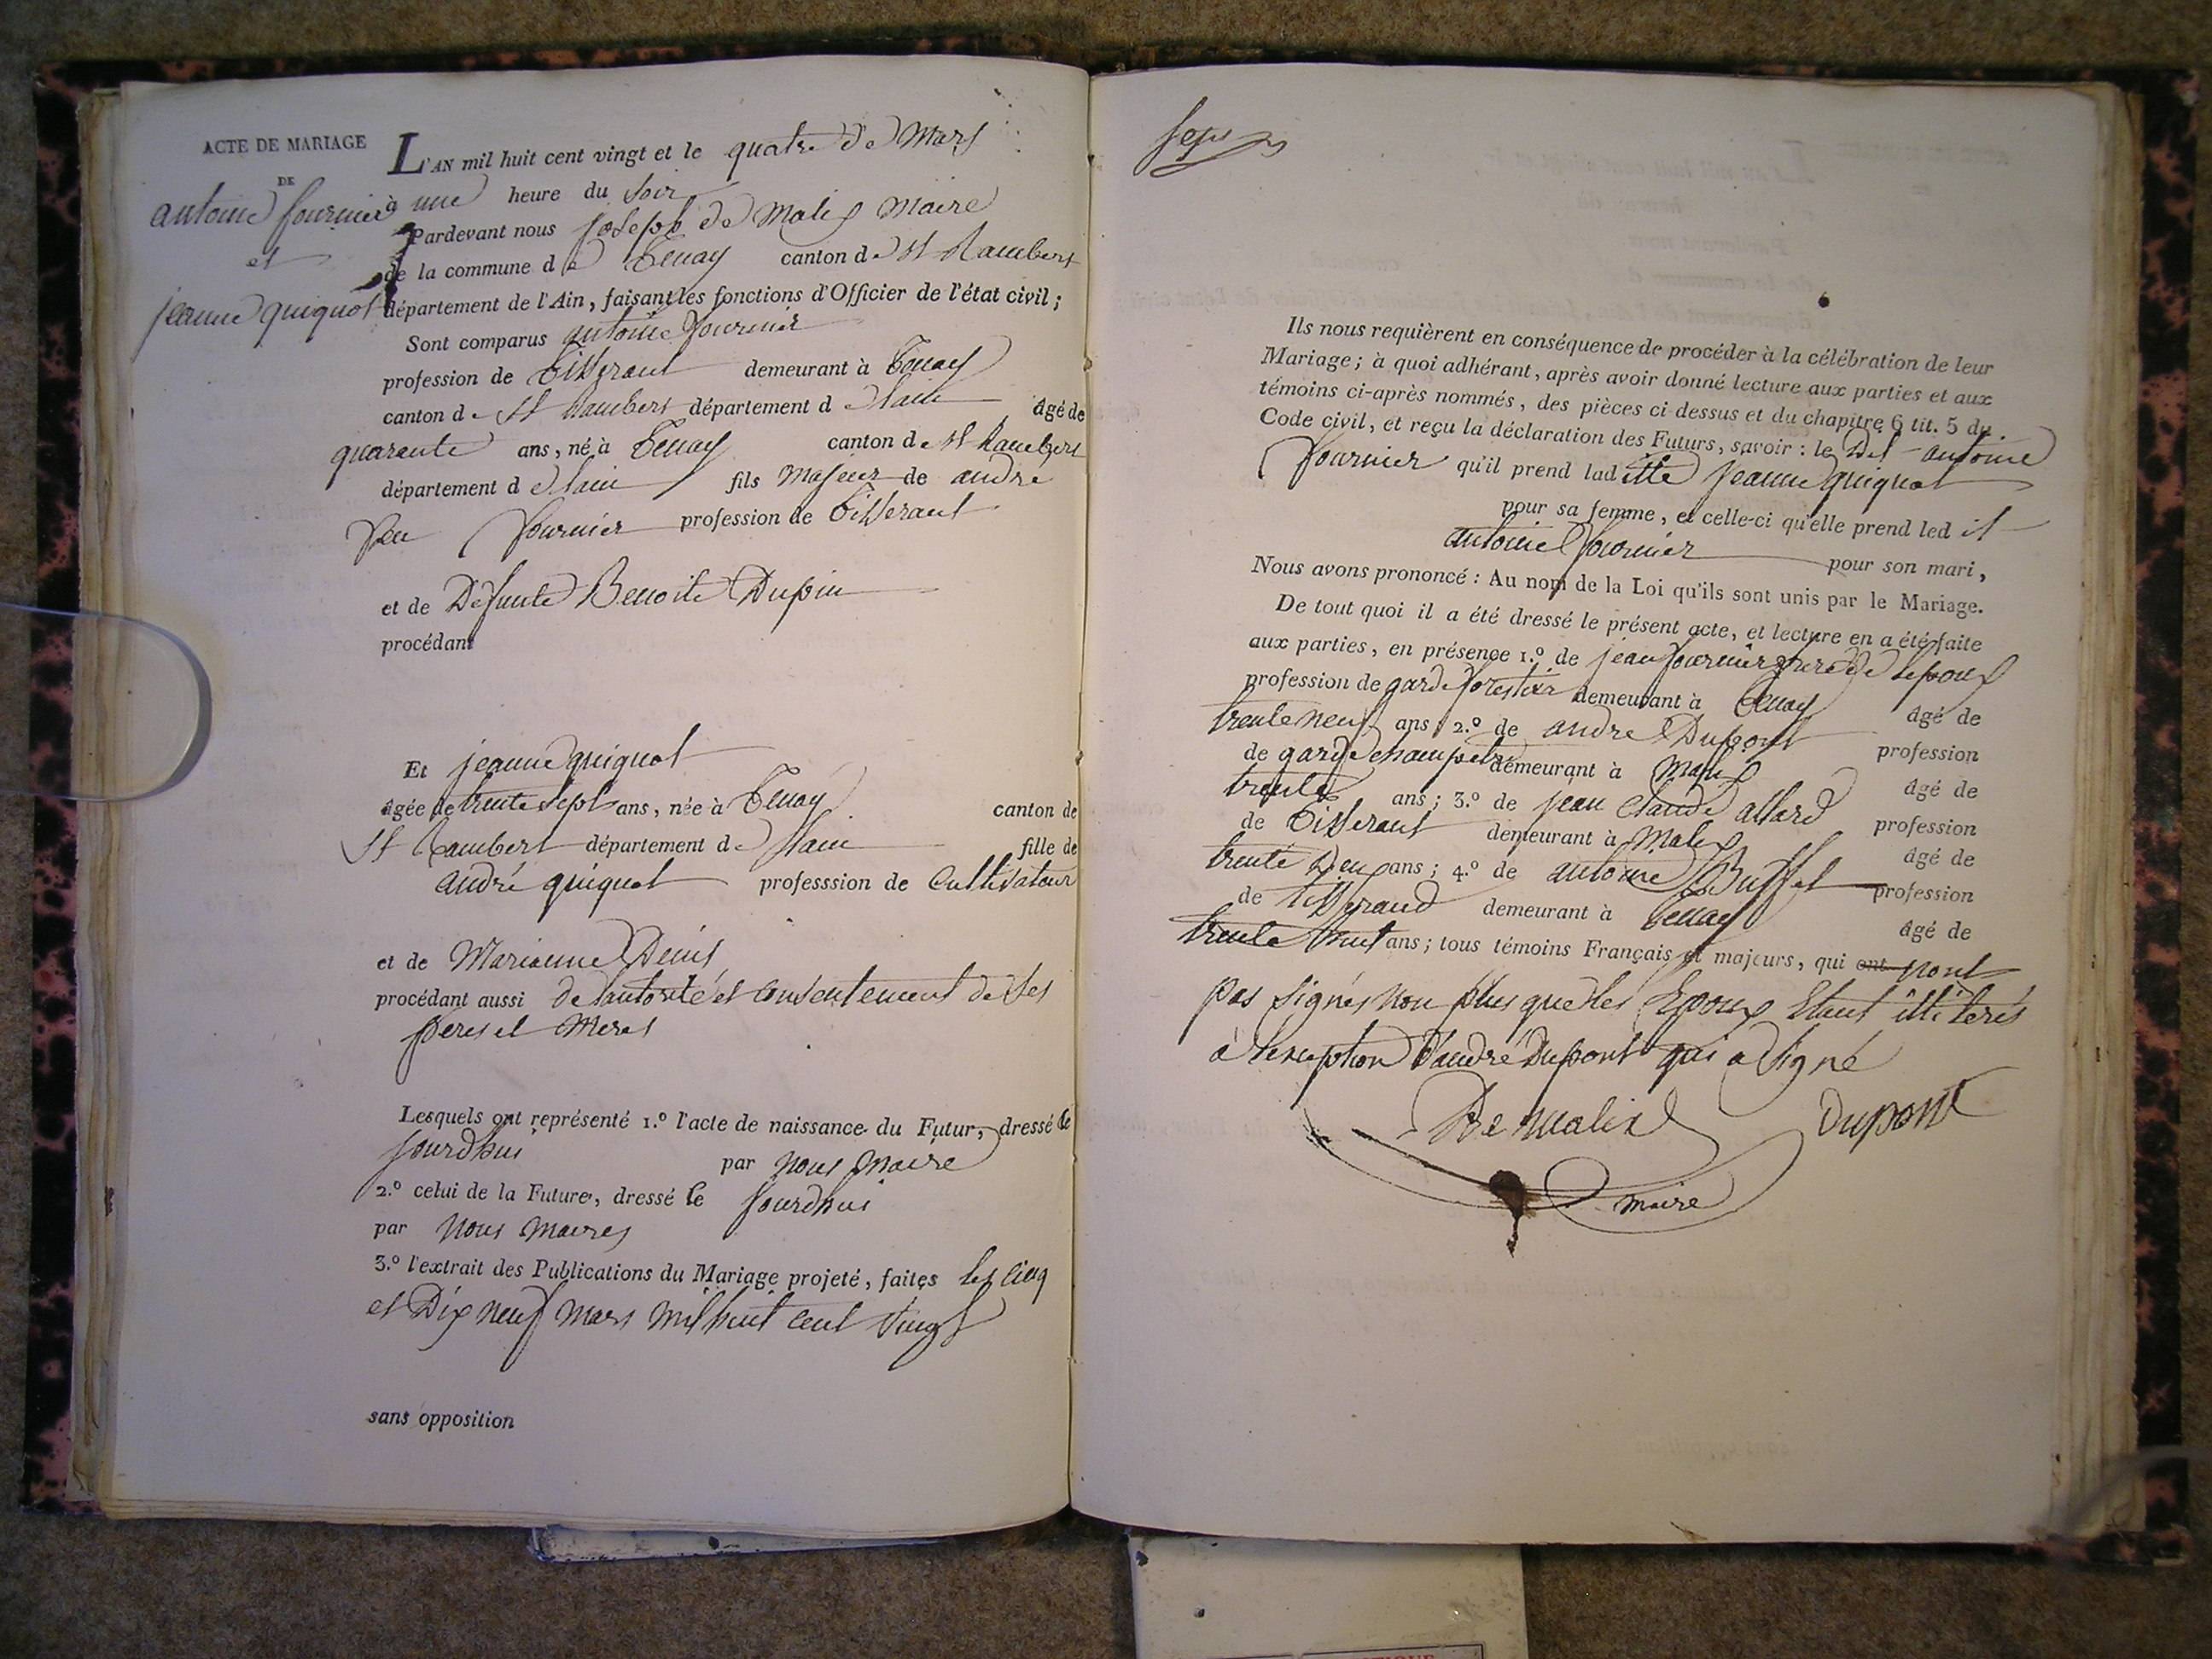 ACTE DE MARIAGE
DE
antoine fournier
et
jeanne quiquot
L'AN mil huit cent vingt et le quatre de Mars
à une heure du soir
Pardevant nous joseph de Malix Maire
de la commune de Tenay canton de St Rambert
département de l'Ain, faisant les fonctions d'Officier de l'état civil;
Sont comparus antoine fournier
profession de Tisserant demeurant à Tenay
canton de St Rambert département d lain âgé de
quarente ans, né à Tenay canton de St Rambert
département d lain fils Majeur de andre
feu fournier profession de Tisserant
et de Defunte Benoite Dupin
procédant
Et jeanne quiquot
âgée de trente sept ans, née à Tenay canton de
St Rambert département de lain fille de
andré quiquot professsion de Cultivateur
et de Marianne Denis
procédant aussi de lautorité et Consentement de ses
peres et Meres
Lesquels ont représenté 1.º l'acte de naissance du Futur, dressé le
jourdhui par nous Maire
2.º celui de la Future, dressé le jourdhui
par nous maires
3.º l'extrait des Publications du Mariage projeté, faites les cinq
et Dix neuf Mars mil huit cent vingt
sans opposition
Ils nous requièrent en conséquence de procéder à la célébration de leur
Mariage; à quoi adhérant, après avoir donné lecture aux parties et aux
témoins ci-après nommés, des pièces ci dessus et du chapitre 6 tit. 5 du
Code civil, et reçu la déclaration des Futurs, savoir: le Dit antoine
fournier qu'il prend laditte jeanne quiquot
pour sa femme, et celle-ci qu'elle prend led it
antoine fournier pour son mari,
Nous avons prononcé: Au nom de la Loi qu'ils sont unis par le Mariage.
De tout quoi il a été dressé le présent acte, et lecture en a été faite
aux parties, en présence 1.º de jean fournier frere de lepoux
profession de garde forestier demeurant à Tenay âgé de
trente neuf ans; 2.º de andre Dupont profession
de garde champetre demeurant à Malix âgé de
trente ans; 3.º de jean Claude allard profession
de Tisserant demeurant à Malix âgé de
trente Deux ans; 4.º de antoine Buffet profession
de tisserand demeurant à Tenay âgé de
trente huit ans; tous témoins Français et majeurs, qui ont nont
pas signés non plus que les Epoux Etant illiterés
à lexception d'andré Dupont qui a signé
De Malix Dupont
maire